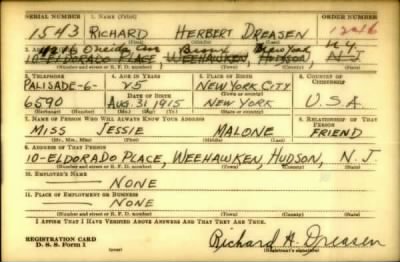 SERIAL NUMBER 1. NAME (Print) ORDER NUMBER
1543 RICHARD HERBERT DREASEN 1246
(First) (Middle) (Last)
4216 Oneida Ave Bronx New York N.Y.
10-ELDORADO PLACE, WEEHAWKEN, HUDSON, N.J.
(Number and street or R. F. D. number) (Town) (County) (State)
3. TELEPHONE 4. AGE IN YEARS 5. PLACE OF BIRTH 6. COUNTRY OF CITIZENSHIP
PALISADE-6- 25 NEW YORK CITY
DATE OF BIRTH
6590 AUG. 31, 1915 NEW YORK U.S.A.
(Exchange) (Number) (Mo.) (Day) (Yr.) (State or county)
7. NAME OF PERSON WHO WILL ALWAYS KNOW YOUR ADDRESS 8. RELATIONSHIP OF THAT PERSON
MISS JESSIE MALONE FRIEND
(Mr., Mrs., Miss) (First) (Middle) (Last)
9. ADDRESS OF THAT PERSON
10-ELDORADO PLACE, WEEHAWKEN, HUDSON, N.J.
(Number and street or R. F. D. number) (Town) (County) (State)
10. EMPLOYER'S NAME
NONE
11. PLACE OF EMPLOYMENT OR BUSINESS
NONE
(Number and street or R. F. D. number) (Town) (County) (State)
I AFFIRM THAT I HAVE VERIFIED ABOVE ANSWERS AND THAT THEY ARE TRUE.
REGISTRATION CARD
D. S. S. Form 1 (over) Richard H. Dreasen
(Registrant's signature)